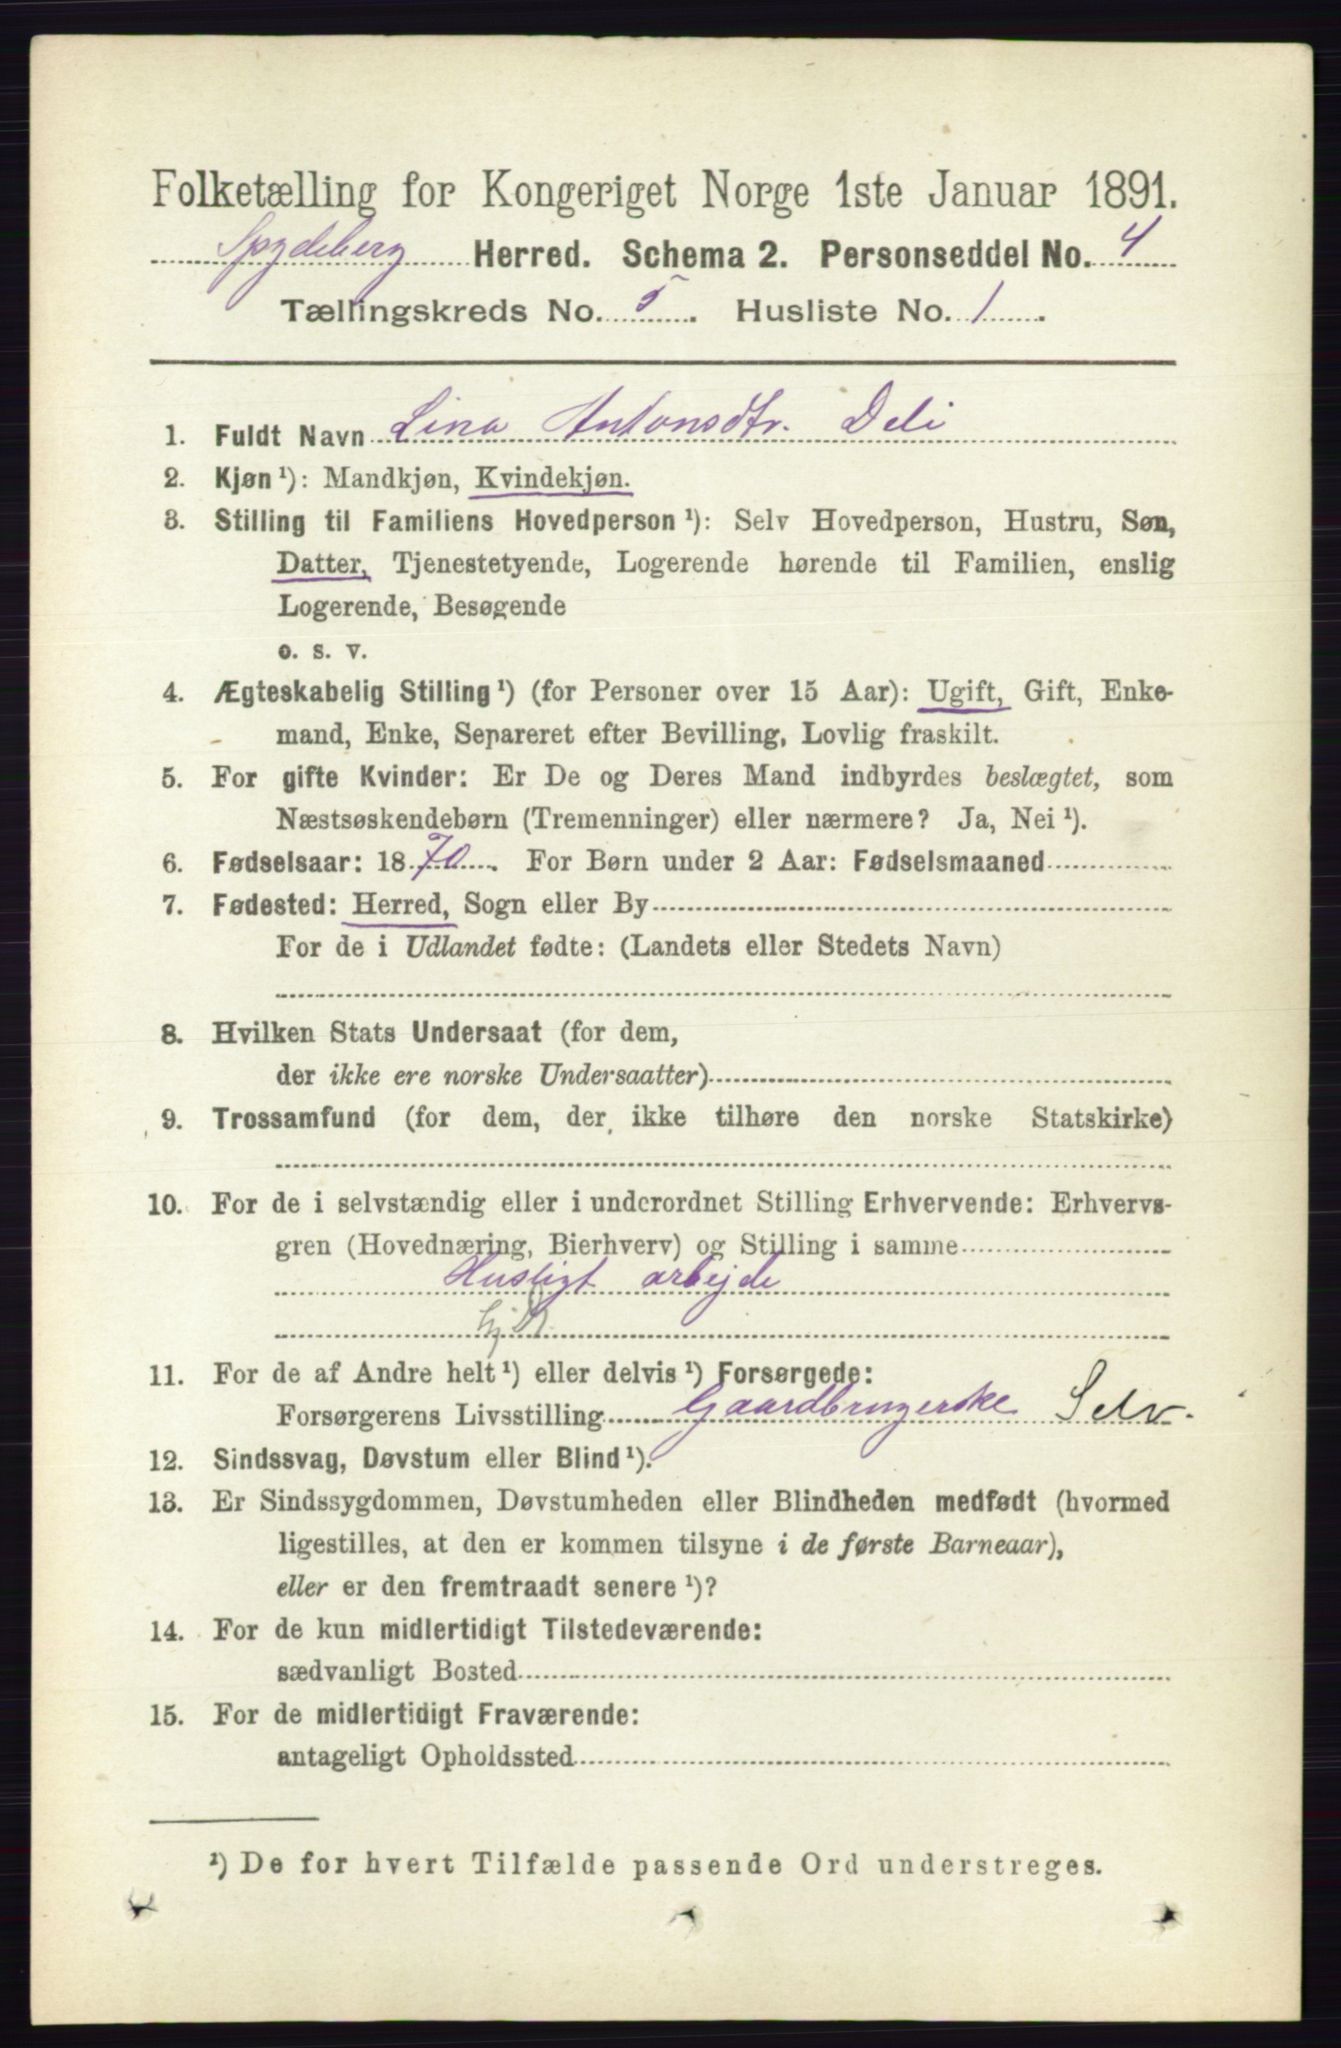 Folketælling for Kongeriget Norge 1ste Januar 1891.
Spydeberg Herred. Schema 2. Personseddel No. 4
Tællingskreds No. 5. Husliste No. 1.
1. Fuldt Navn Lina Antonsdtr. Deli
2. Kjøn ¹): Mandkjøn, Kvindekjøn.
3. Stilling til Familiens Hovedperson ¹): Selv Hovedperson, Hustru, Søn,
Datter, Tjenestetyende, Logerende hørende til Familien, enslig
Logerende, Besøgende
o. s. v.
4. Ægteskabelig Stilling ¹) (for Personer over 15 Aar): Ugift, Gift, Enke-
mand, Enke, Separeret efter Bevilling, Lovlig fraskilt.
5. For gifte Kvinder: Er De og Deres Mand indbyrdes beslægtet, som
Næstsøskendebørn (Tremenninger) eller nærmere? Ja, Nei ¹).
6. Fødselsaar: 1870. For Børn under 2 Aar: Fødselsmaaned
7. Fødested: Herred, Sogn eller By
For de i Udlandet fødte: (Landets eller Stedets Navn)
8. Hvilken Stats Undersaat (for dem,
der ikke ere norske Undersaatter)
9. Trossamfund (for dem, der ikke tilhøre den norske Statskirke)
10. For de i selvstændig eller i underordnet Stilling Erhvervende: Erhvervs-
gren (Hovednæring, Bierhverv) og Stilling i samme
Husligt arbejde
11. For de af Andre helt ¹) eller delvis ¹) Forsørgede:
Forsørgerens Livsstilling Gaardbrugerske Selv.
12. Sindssvag, Døvstum eller Blind ¹).
13. Er Sindssygdommen, Døvstumheden eller Blindheden medfødt (hvormed
ligestilles, at den er kommen tilsyne i de første Barneaar),
eller er den fremtraadt senere ¹)?
14. For de kun midlertidigt Tilstedeværende:
sædvanligt Bosted
15. For de midlertidigt Fraværende:
antageligt Opholdssted
¹) De for hvert Tilfælde passende Ord understreges.